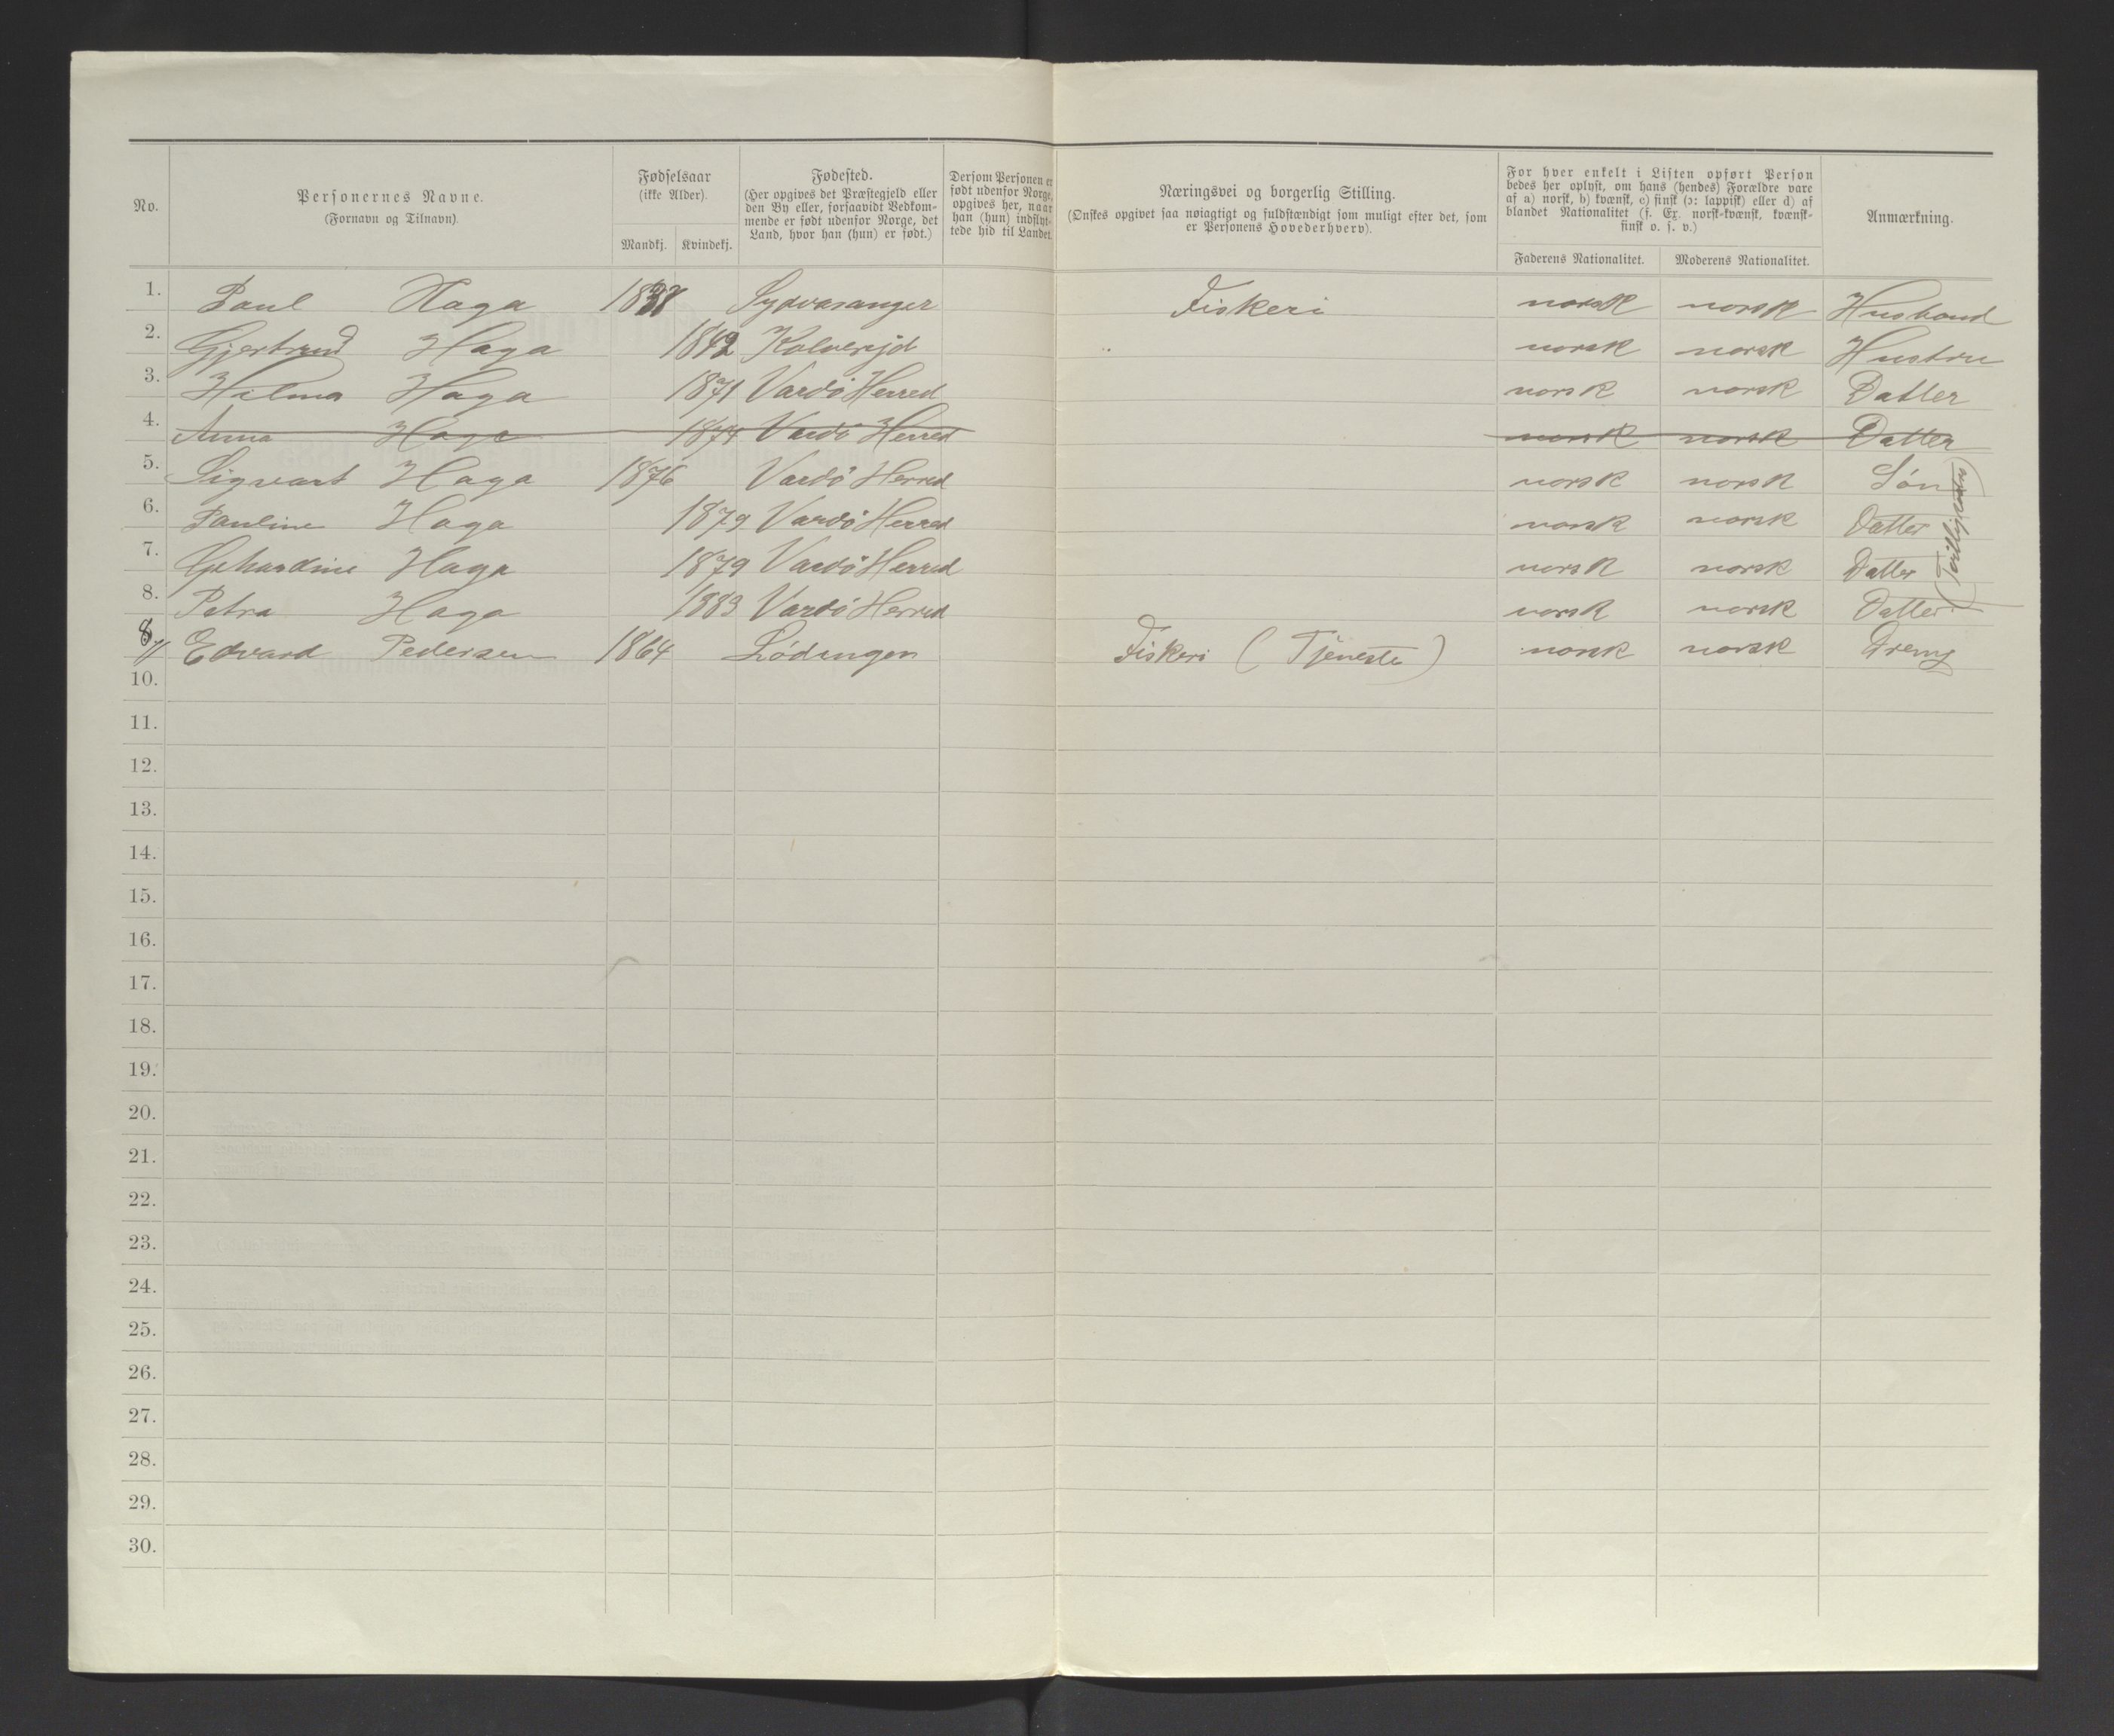 No.
Personernes Navne.
(Fornavn og Tilnavn).
Fødselsaar
(ikke Alder).
Mandkj. Kvindekj.
Fødested.
(Her opgives det Præstegjeld eller
den By eller, forsaavidt Vedkom-
mende er født udenfor Norge, det
Land, hvor han (hun) er født.)
Dersom Personen er
født udenfor Norge,
opgives her, naar
han (hun) indflyt-
tede hid til Landet.
Næringsvei og borgerlig Stilling.
(Ønskes opgivet saa nøiagtigt og fuldstændigt som muligt efter det, som
er Personens Hovederhverv).
For hver enkelt i Listen opført Person
bedes her oplyst, om hans (hendes) Forældre vare
af a) norsk, b) kvænsk, c) finsk (ɔ: lappisk) eller d) af
blandet Nationalitet (f. Ex. norsk-kvænsk, kvænsk-
finsk o. s. v.)
Faderens Nationalitet. Moderens Nationalitet.
Anmærkning.
1. Paul Haga 1838 Sydvaranger Fiskeri norsk norsk Husbond
2. Gjertrud Haga 1842 Kolverejd norsk norsk Hustru
3. Hilma Haga 1871 Vardö Herred norsk norsk Datter
4. Anna Haga 1874 Vardö Herred norsk norsk Datter
5. Sigvart Haga 1876 Vardö Herred norsk norsk Søn
6. Pauline Haga 1879 Vardö Herred norsk norsk Datter
7. Gehardine Haga 1879 Vardö Herred norsk norsk Datter
8. Petra Haga 1883 Vardö Herred norsk norsk Datter
8 Edvard Pedersen 1864 Lødingen Fiskeri (Tjeneste) norsk norsk Dreng
10.
11.
12.
13.
14.
15.
16.
17.
18.
19.
20.
21.
22.
23.
24.
25.
26.
27.
28.
29.
30.